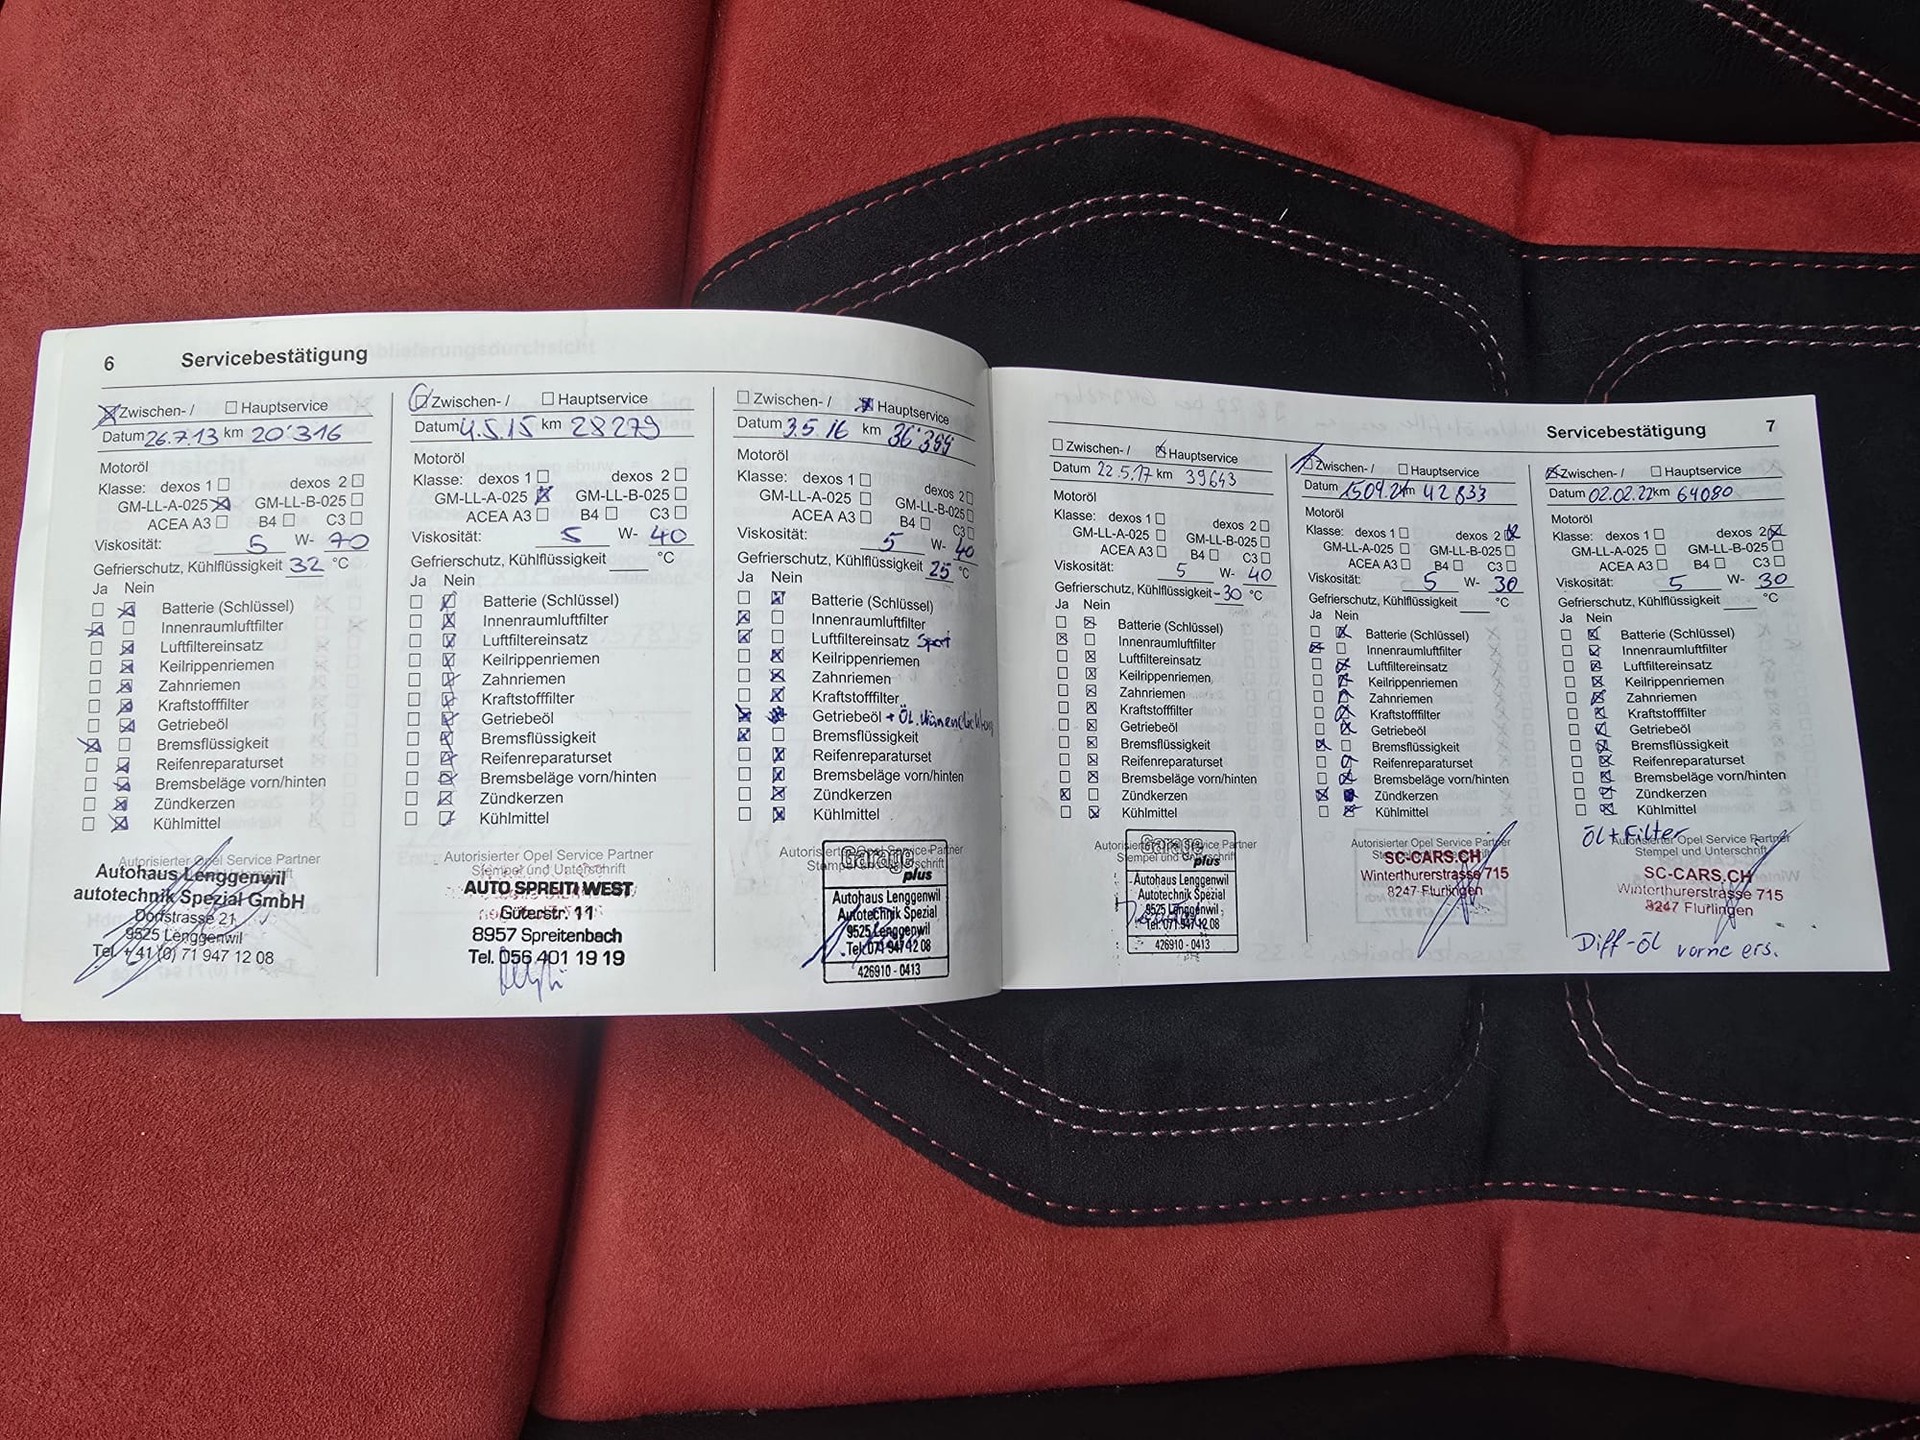 6 Servicebestätigung
Zwischen- / Hauptservice
Datum 26.7.13 km 20'316
Motoröl
Klasse: dexos 1 dexos 2
GM-LL-A-025 GM-LL-B-025
ACEA A3 B4 C3
Viskosität: 5 W- 70
Gefrierschutz, Kühlflüssigkeit 32 °C
Ja Nein
Batterie (Schlüssel)
Innenraumluftfilter
Luftfiltereinsatz
Keilrippenriemen
Zahnriemen
Kraftstofffilter
Getriebeöl
Bremsflüssigkeit
Reifenreparaturset
Bremsbeläge vorn/hinten
Zündkerzen
Kühlmittel
Autorisierter Opel Service Partner
Autohaus Lenggenwil
autotechnik Spezial GmbH
Dorfstrasse 21
9525 Lenggenwil
Tel. +41 (0) 71 947 12 08
Zwischen- / Hauptservice
Datum 4.5.15 km 28279
Motoröl
Klasse: dexos 1 dexos 2
GM-LL-A-025 GM-LL-B-025
ACEA A3 B4 C3
Viskosität: 5 W- 40
Gefrierschutz, Kühlflüssigkeit °C
Ja Nein
Batterie (Schlüssel)
Innenraumluftfilter
Luftfiltereinsatz
Keilrippenriemen
Zahnriemen
Kraftstofffilter
Getriebeöl
Bremsflüssigkeit
Reifenreparaturset
Bremsbeläge vorn/hinten
Zündkerzen
Kühlmittel
Autorisierter Opel Service Partner
Stempel und Unterschrift
AUTO SPREITI WEST
Güterstr. 11
8957 Spreitenbach
Tel. 056 401 19 19
Zwischen- / Hauptservice
Datum 3.5.16 km 36'399
Motoröl
Klasse: dexos 1 dexos 2
GM-LL-A-025 GM-LL-B-025
ACEA A3 B4 C3
Viskosität: 5 W- 40
Gefrierschutz, Kühlflüssigkeit 25 °C
Ja Nein
Batterie (Schlüssel)
Innenraumluftfilter
Luftfiltereinsatz Sport
Keilrippenriemen
Zahnriemen
Kraftstofffilter
Getriebeöl + ÖL
Bremsflüssigkeit
Reifenreparaturset
Bremsbeläge vorn/hinten
Zündkerzen
Kühlmittel
Autorisierter Opel Service Partner
Stempel und Unterschrift
Garage
plus
Autohaus Lenggenwil
Autotechnik Spezial
9525 Lenggenwil
Tel. 071 947 12 08
426910 - 0413
Servicebestätigung 7
Zwischen- / Hauptservice
Datum 22.5.17 km 39643
Motoröl
Klasse: dexos 1 dexos 2
GM-LL-A-025 GM-LL-B-025
ACEA A3 B4 C3
Viskosität: 5 W- 40
Gefrierschutz, Kühlflüssigkeit -30 °C
Ja Nein
Batterie (Schlüssel)
Innenraumluftfilter
Luftfiltereinsatz
Keilrippenriemen
Zahnriemen
Kraftstofffilter
Getriebeöl
Bremsflüssigkeit
Reifenreparaturset
Bremsbeläge vorn/hinten
Zündkerzen
Kühlmittel
Autorisierter Opel Service Partner
Stempel und Unterschrift
Garage
plus
Autohaus Lenggenwil
Autotechnik Spezial
9525 Lenggenwil
Tel. 071 947 12 08
426910 - 0413
Zwischen- / Hauptservice
Datum km 42833
Motoröl
Klasse: dexos 1 dexos 2
GM-LL-A-025 GM-LL-B-025
ACEA A3 B4 C3
Viskosität: 5 W- 30
Gefrierschutz, Kühlflüssigkeit °C
Ja Nein
Batterie (Schlüssel)
Innenraumluftfilter
Luftfiltereinsatz
Keilrippenriemen
Zahnriemen
Kraftstofffilter
Getriebeöl
Bremsflüssigkeit
Reifenreparaturset
Bremsbeläge vorn/hinten
Zündkerzen
Kühlmittel
Autorisierter Opel Service Partner
SC-CARS.CH
Winterthurerstrasse 715
8247 Flurlingen
Zwischen- / Hauptservice
Datum 02.02.22 km 64080
Motoröl
Klasse: dexos 1 dexos 2
GM-LL-A-025 GM-LL-B-025
ACEA A3 B4 C3
Viskosität: 5 W- 30
Gefrierschutz, Kühlflüssigkeit °C
Ja Nein
Batterie (Schlüssel)
Innenraumluftfilter
Luftfiltereinsatz
Keilrippenriemen
Zahnriemen
Kraftstofffilter
Getriebeöl
Bremsflüssigkeit
Reifenreparaturset
Bremsbeläge vorn/hinten
Zündkerzen
Kühlmittel
ÖL + Filter
Autorisierter Opel Service Partner
Stempel und Unterschrift
SC-CARS.CH
Winterthurerstrasse 715
8247 Flurlingen
Diff-ÖL vorne ers.